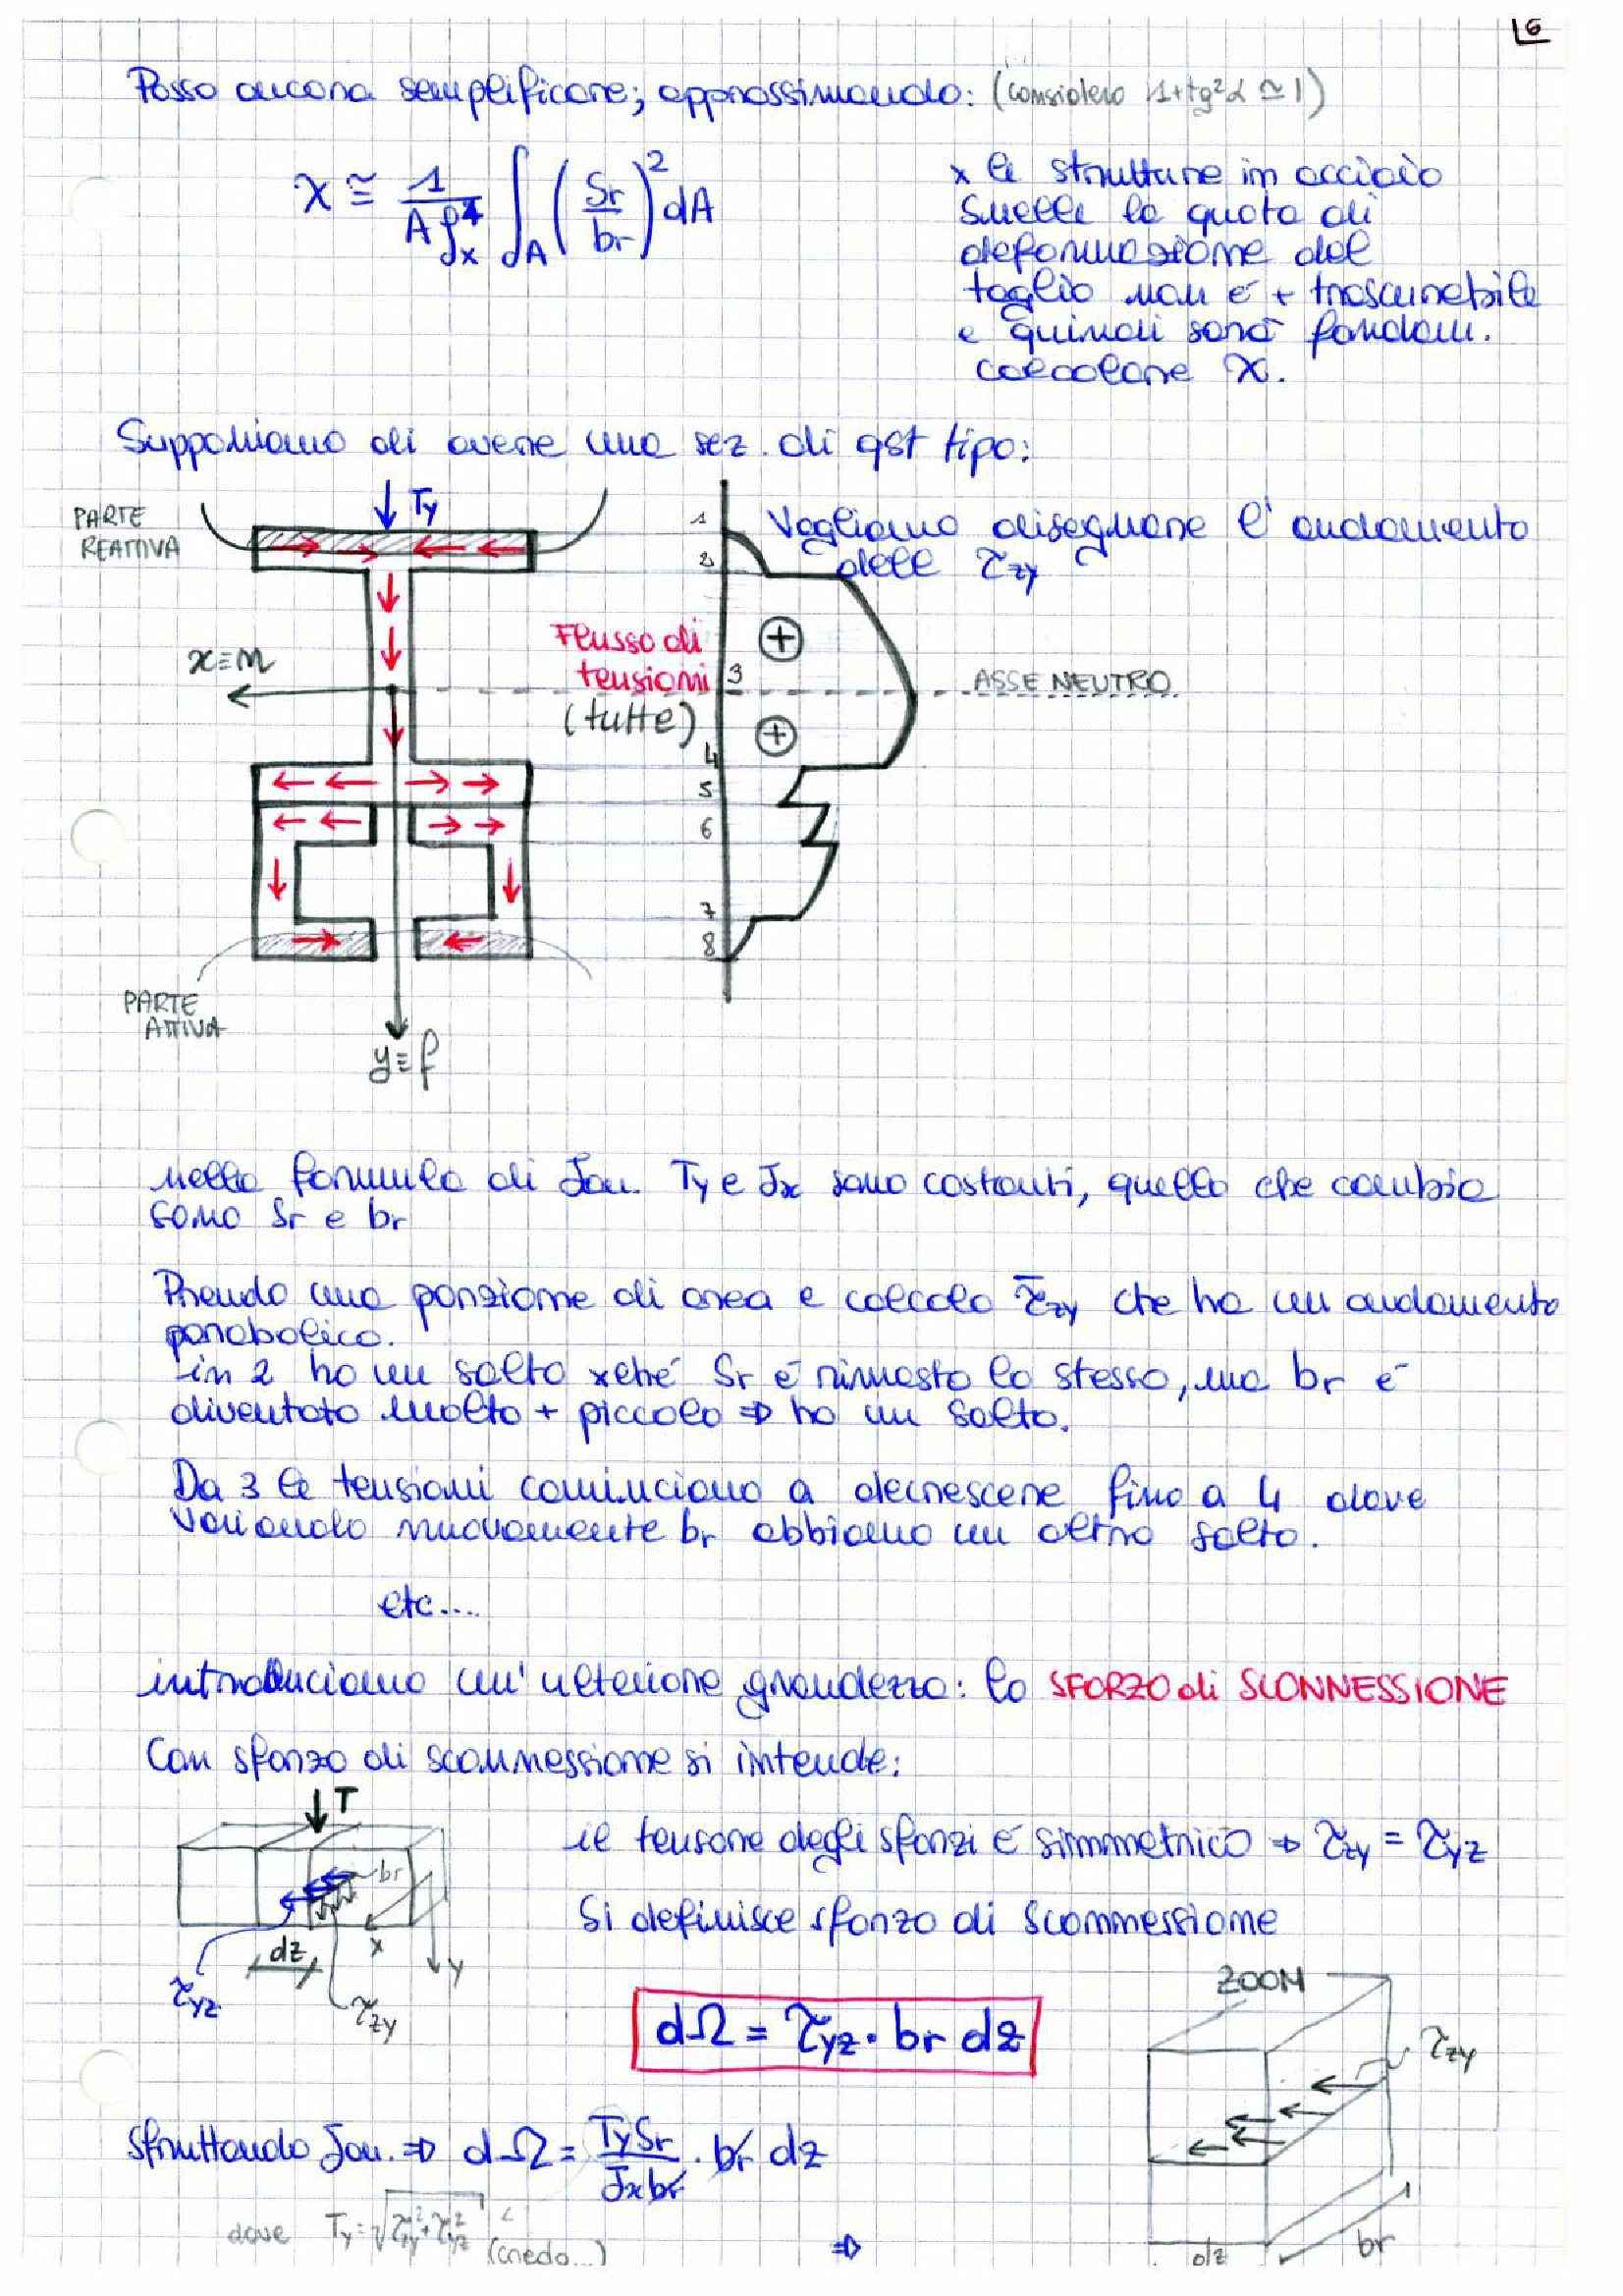 6
Posso ancora semplificare; approssimando: (considero 1+tg²α ≃ 1)
χ ≅ 1/(A ρx⁴) ∫A (Sr/br)² dA
x le strutture in acciaio
snelle la quota di
deformazione del
taglio non è + trascurabile
e quindi sarà fondam.
calcolare χ.
Supponiamo di avere una sez. di qst tipo:
PARTE
REATTIVA
Ty
1
2
Vogliamo disegnare l'andamento
delle τzy
x≡m
Flusso di
tensioni
(tutte)
+
3
ASSE NEUTRO
+
4
5
6
7
8
PARTE
ATTIVA
y≡f
nella formula di Jou. Ty e Jx sono costanti, quello che cambia
sono Sr e br
Prendo una porzione di area e calcolo τ̄zy che ha un andamento
parabolico.
in 2 ho un salto xché Sr è rimasto lo stesso, ma br è
diventato molto + piccolo ⇒ ho un salto.
Da 3 le tensioni cominciano a decrescere fino a 4 dove
variando nuovamente br abbiamo un altro salto.
etc....
introduciamo un'ulteriore grandezza: lo SFORZO di SCONNESSIONE
Con sforzo di sconnessione si intende:
T
br
dz
x
y
τyz
τzy
il tensore degli sforzi è simmetrico ⇒ τzy = τyz
Si definisce sforzo di scommessione
dΩ = τyz · br dz
ZOOM
τzy
sfruttando Jou. ⇒ dΩ = TySr/Jxbr · br dz
dove Ty = √(τ²zy + τ²yz) (credo...)
⇒
dz
br